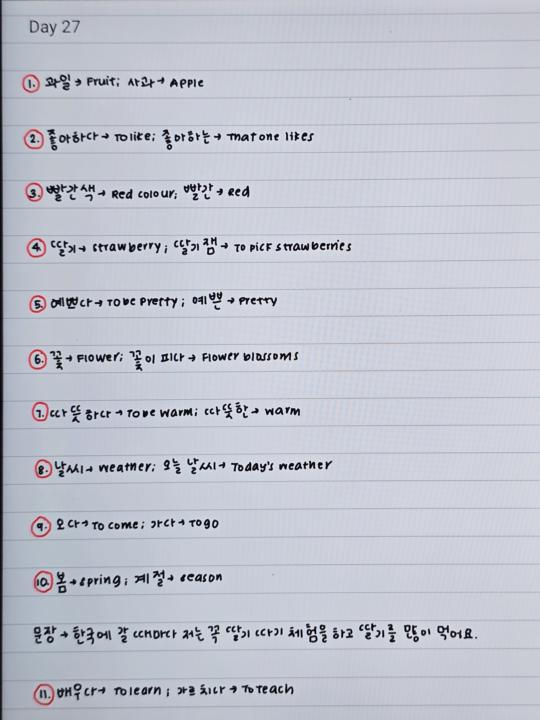 Day 27
1. 과일 → Fruit; 사과 → Apple
2. 좋아하다 → To like; 좋아하는 → That one likes
3. 빨간색 → Red colour; 빨간 → Red
4. 딸기 → strawberry; 딸기잼 → To pick strawberries
5. 예쁘다 → To be Pretty; 예쁜 → Pretty
6. 꽃 → Flower; 꽃이 피다 → Flower blossoms
7. 따뜻하다 → To be warm; 따뜻한 → warm
8. 날씨 → weather; 오늘 날씨 → Today's weather
9. 오다 → To come; 가다 → To go
10. 봄 → spring; 계절 → season
문장 → 한국에 갈 때마다 저는 꼭 딸기 따기 체험을 하고 딸기를 많이 먹어요.
11. 배우다 → To learn; 가르치다 → To teach